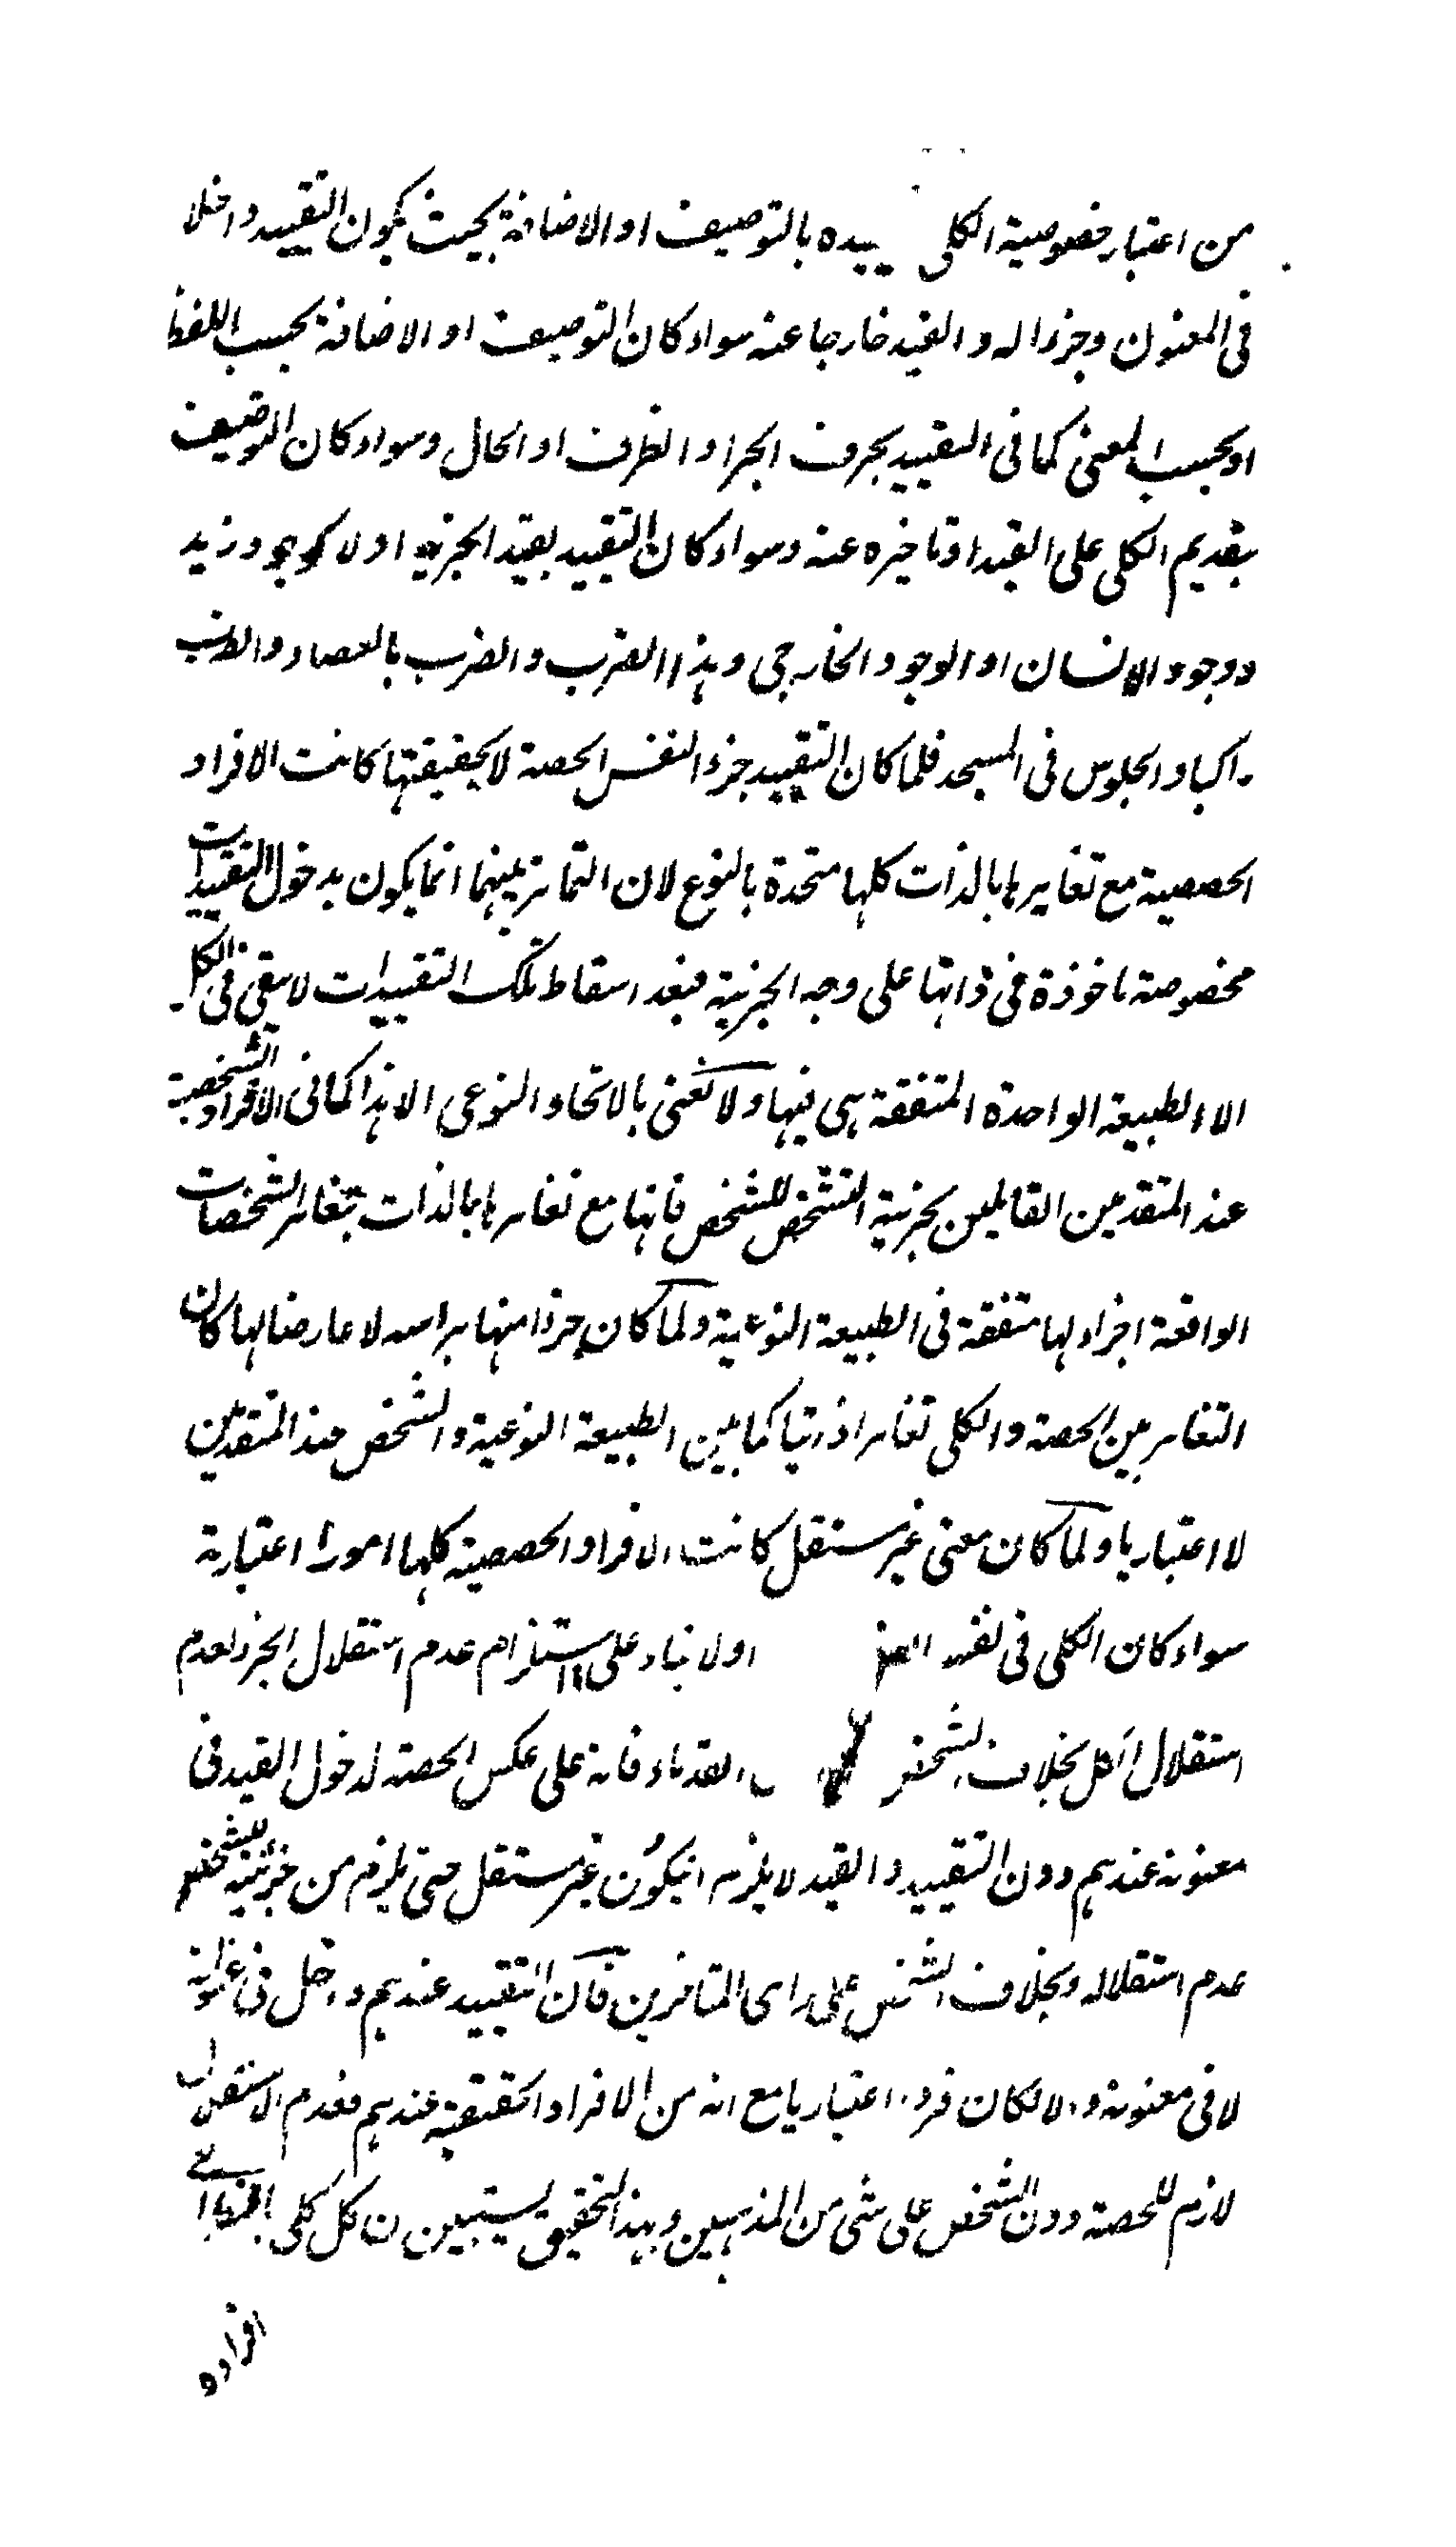 من اعتبار خصوصية الكلى ييده بالتوصيف او الاضافة بحيث يكون التقييد داخلا
فى المعنون وجزءا له و القيد خارجا عنه سواء كان التوصيف او الاضافة بحسب اللفظ
او بحسب المعنى كما فى التقييد بحرف الجر او الظرف او الحال وسواء كان التوصيف
بتقديم الكلى على القيد او تاخيره عنه وسواء كان التقييد بقيد الجزئية او لا كوجود زيد
ووجود الانسان او الوجود الخارجى وهذا الضرب والضرب بالعصاء و
راكبا و الجلوس فى المسجد فلما كان التقييد جزء النفس الحصة لا لحقيقتها كانت الافراد
الحصصية مع تغايرها بالذات كلها متحدة بالنوع لان التمايز بينهما انما يكون بدخول التقييدات
مخصوصة ماخوذة فى ذاتها على وجه الجزئية فبعد اسقاط تلك التقييدات لا يبقى فى الكل
الا الطبيعة الواحدة المتفقة هى فيها ولا نعنى بالاتحاد النوعى الا هذا كما فى الافراد الشخصية
عند المتقدمين القايلين بجزئية التشخص للشخص فانها مع تغايرها بالذات بتغاير التشخصات
الواقعة اجزاء لها متفقة فى الطبيعة النوعية ولما كان جزءا منها براسه لا عارضا لها كان
التغاير بين الحصة و الكلى تغايرا ذاتيا كما بين الطبيعة النوعية و الشخص عند المتقدمين
لا اعتباريا ولما كان معنى غير مستقل كانت الافراد الحصصية كلها امورا اعتبارية
سواء كان الكلى فى نفسه او لا بناء على استلزام عدم استقلال الجزء لعدم
استقلال الكل بخلاف الشخص القدماء فانه على عكس الحصة لدخول القيد فى
معنونه عندهم دون التقييد و القيد لا يلزم ان يكون غير مستقل حتى يلزم من جزئيته للشخص
عدم استقلاله وبخلاف الشخص على راى المتاخرين فان التقييد عندهم داخل فى عنوانه
لا فى معنونه و الا لكان فردا اعتباريا مع انه من الافراد الحقيقية عندهم فعدم الاستقلال
لازم للحصة دون الشخص على شى من المذهبين وبهذا التحقيق يستبين ان كل كلى
افراده